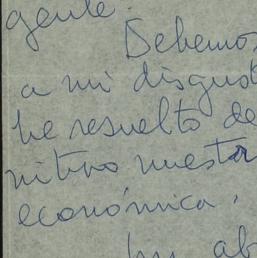 gente.
Debemos
a mi disgust
he resuelto de
nitivo nuestr
económica.
un ab